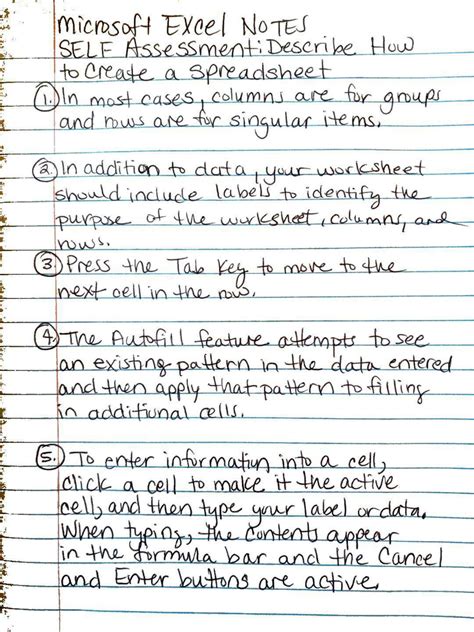 Microsoft Excel NOTES
SELF Assessment: Describe How
to Create a Spreadsheet
1. In most cases, columns are for groups
and rows are for singular items.
2. In addition to data, your worksheet
should include labels to identify the
purpose of the worksheet, columns, and
rows.
3. Press the Tab Key to move to the
next cell in the row.
4. The Autofill feature attempts to see
an existing pattern in the data entered
and then apply that pattern to filling
in additional cells.
5. To enter information into a cell,
click a cell to make it the active
cell, and then type your label or data.
When typing, the contents appear
in the formula bar and the Cancel
and Enter buttons are active.